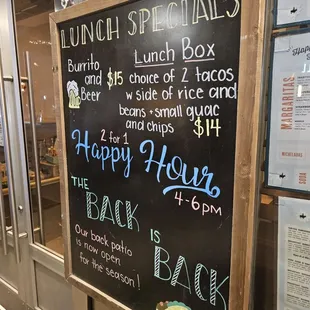 LUNCH SPECIALS
Burrito
and $15
Beer
Lunch Box
choice of 2 tacos
w side of rice and
beans + small guac
and chips $14
2 for 1
Happy Hour
4-6pm
THE
BACK
IS
BACK
Our back patio
is now open
for the season!
MARGARITAS